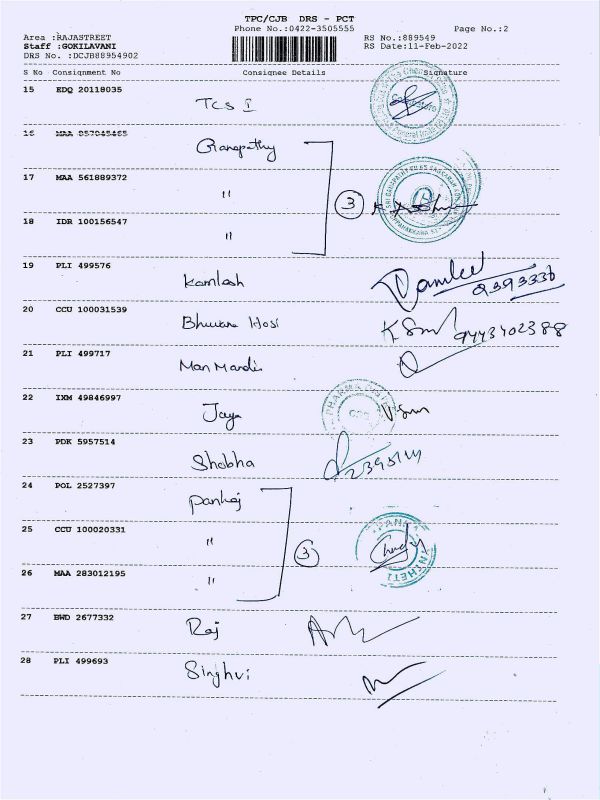 TPC/CJB DRS - PCT
Phone No.:0422-3505555 Page No.:2
Area :RAJASTREET RS No.:889549
Staff :GOKILAVANI RS Date:11-Feb-2022
DRS No. :DCJB88954902
S No Consignment No Consignee Details Signature
15 EDQ 20118035
TCS I
16 MAA 857045465
Ganapathy
17 MAA 561889372
"
3
18 IDR 100156547
"
19 PLI 499576
Kamlesh
9393330
20 CCU 100031539
Bhuvana Hosi
9443402388
21 PLI 499717
Man Mandir
22 IXM 49846997
Jaya
23 PDK 5957514
Shobha
24 POL 2527397
Pankaj
25 CCU 100020331
"
3
26 MAA 283012195
"
27 BWD 2677332
Raj
28 PLI 499693
Singhvi